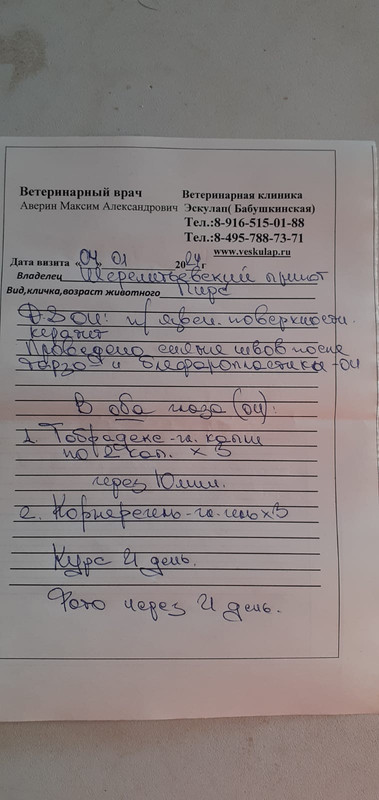 Ветеринарный врач
Аверин Максим Александрович
Ветеринарная клиника
Эскулап( Бабушкинская)
Тел.:8-916-515-01-88
Тел.:8-495-788-73-71
www.veskulap.ru
Дата визита «04» 01 2024г
Владелец Шереметьевский приют
Вид,кличка,возраст животного Пирс
ДЗ OU: п/язвен. поверхностн.
кератит
Проведено снятие швов после
тарзо и блефаропластики - OU
В оба глаза (OU):
1. Тобрадекс - гл. капли
по 2 кап. х 3
через 10 мин.
2. Корнерегель - гл. гель х 3
Курс 21 день.
Фото через 21 день.